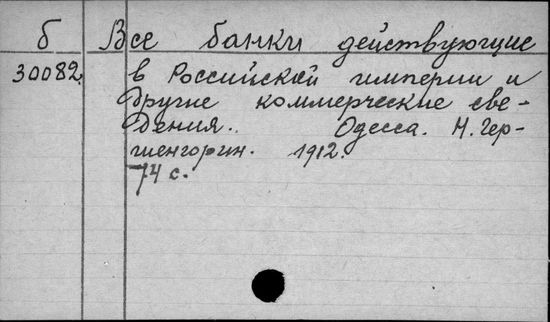 б Все банки действующие
30082. в Российской империи и
другие коммерческие све-
дения.. Одесса. Н. Гер-
шенгорин. 1912.
74 с.